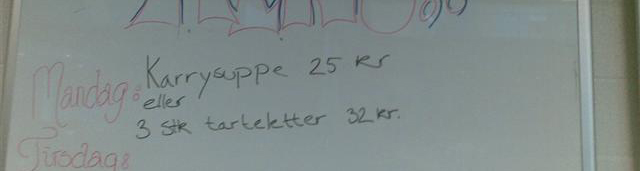 Mandag: Karrysuppe 25 kr
eller
3 stk tarteletter 32 kr.
Tirsdag: